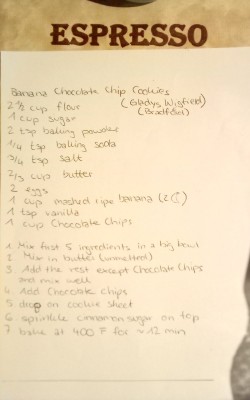 ESPRESSO
Banana Chocolate Chip Cookies
2 1/2 cup flour (Gladys Wigfield)
1 cup sugar (Bradford)
2 tsp baking powder
1/4 tsp baking soda
3/4 tsp salt
2/3 cup butter
2 eggs
1 cup mashed ripe banana (2
1 tsp vanilla
1 cup Chocolate Chips
1 Mix first 5 ingredients in a big bowl
2 Mix in butter (unmelted)
3 Add the rest except Chocolate Chips
and mix well
4 Add Chocolate chips
5 drop on cookie sheet
6 sprinkle cinnamon sugar on top
7 bake at 400 F for ~12 min